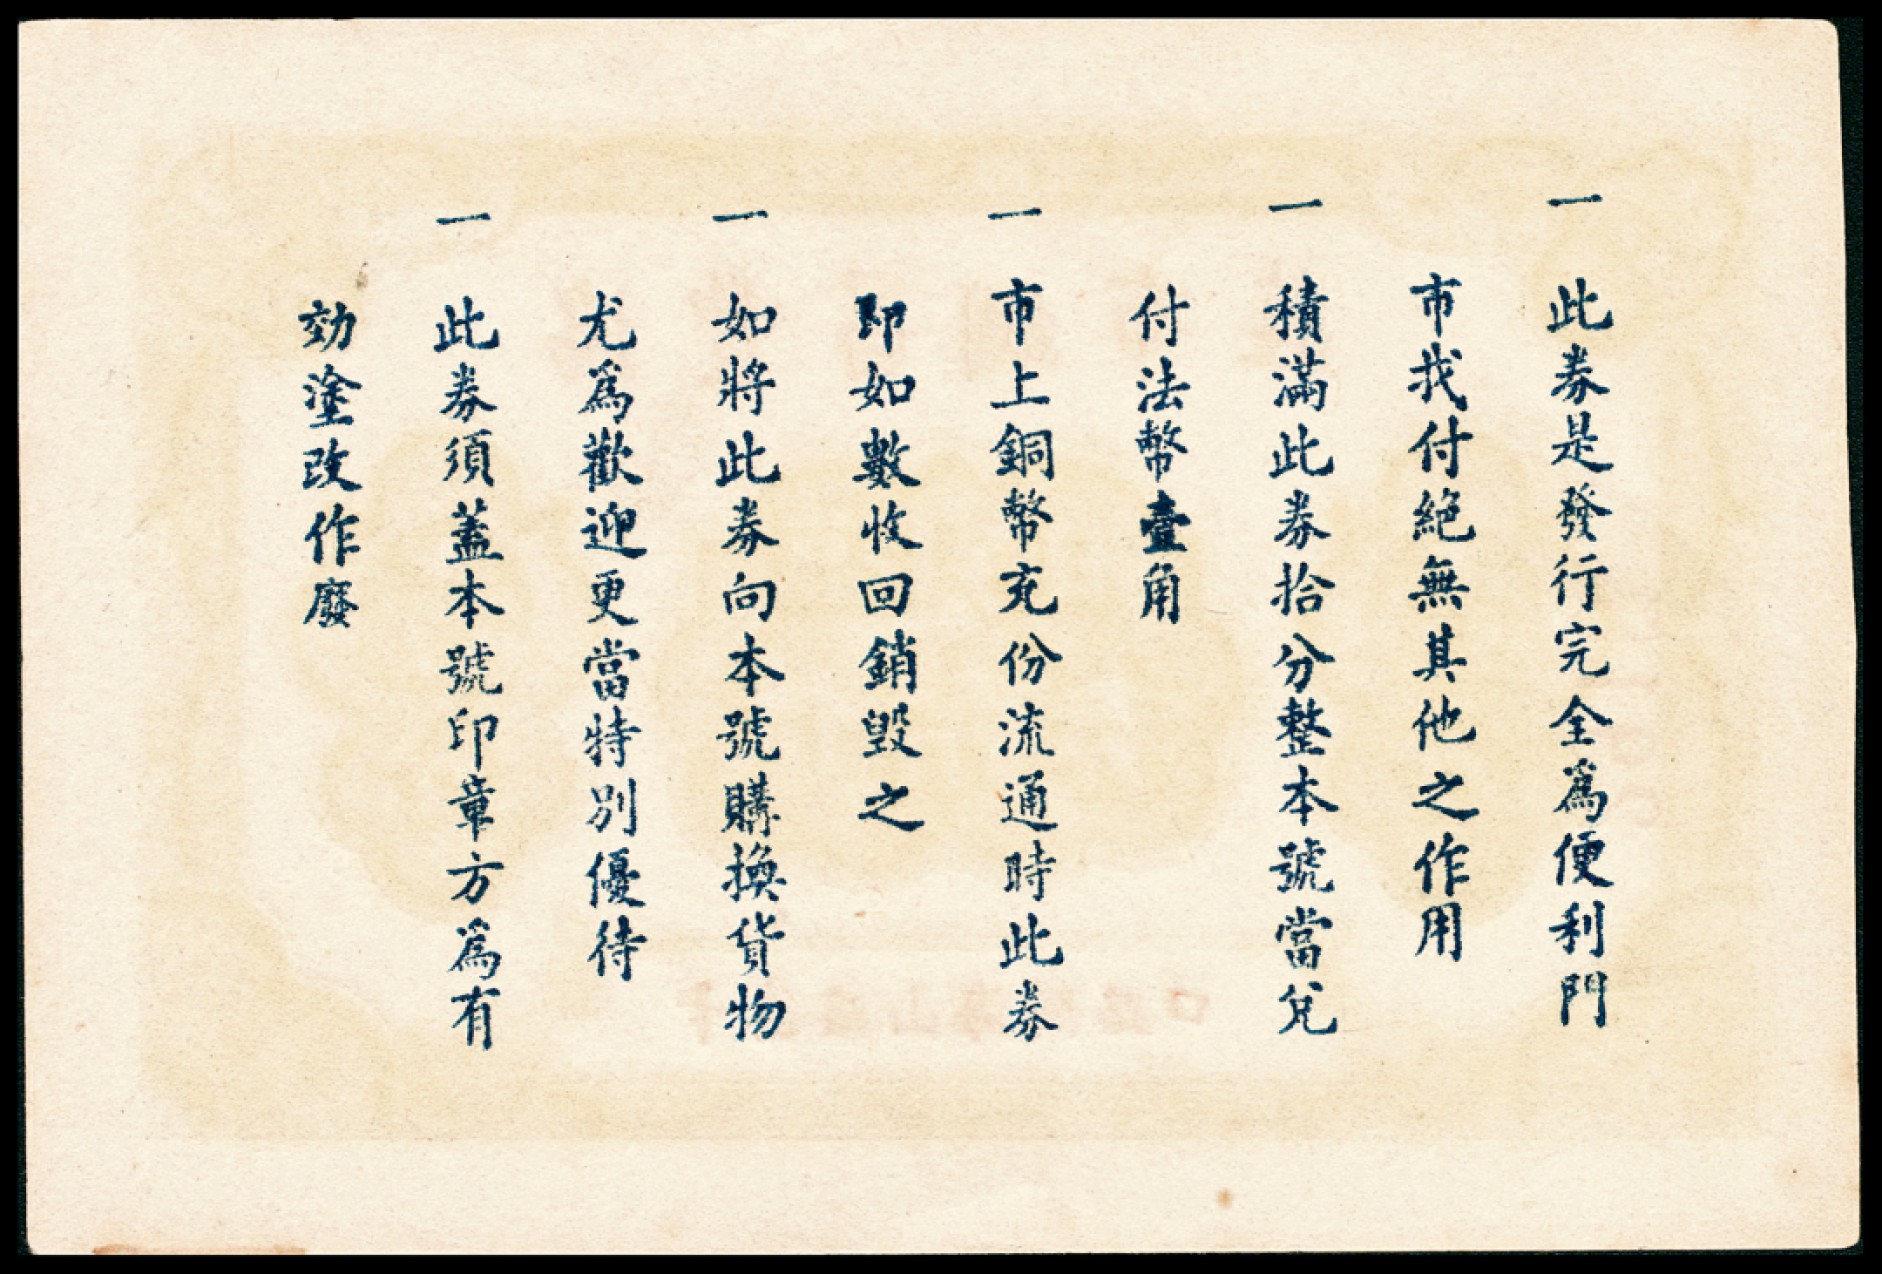 一 此券是發行完全為便利門
市找付絕無其他之作用
一 積滿此券拾分整本號當兌
付法幣壹角
一 市上銅幣充份流通時此券
即如數收回銷毀之
一 如將此券向本號購換貨物
尤為歡迎更當特別優待
一 此券須蓋本號印章方為有
効塗改作廢